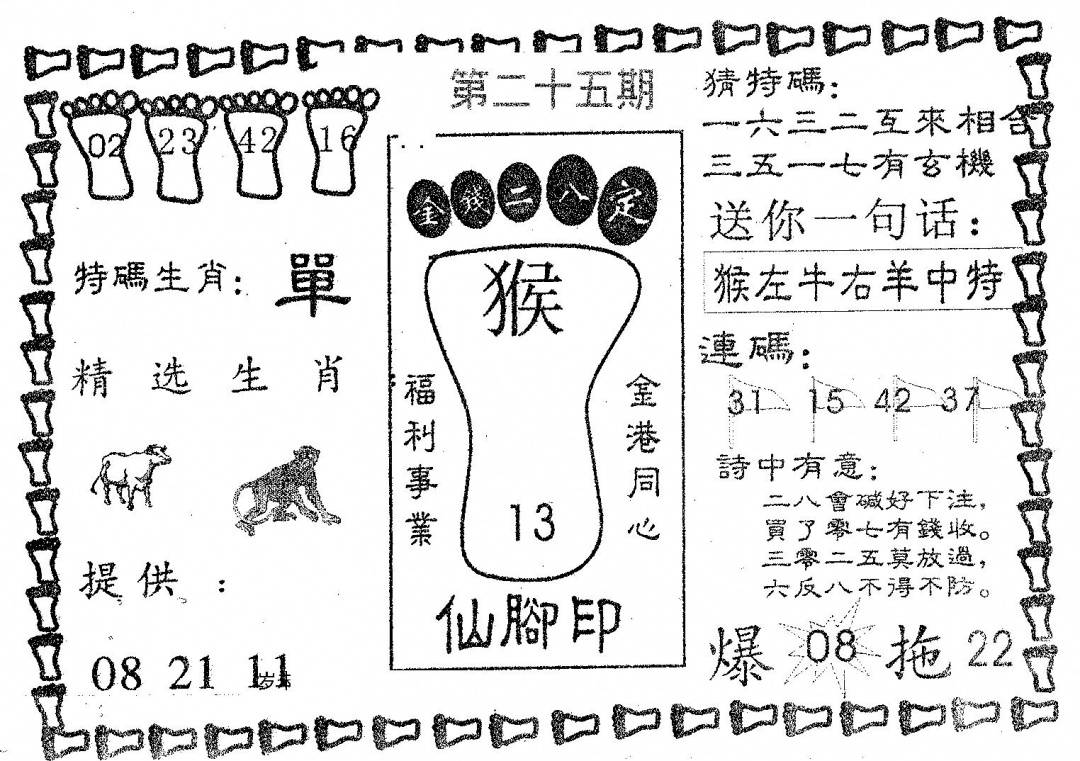 第二十五期
02 23 42 16
特碼生肖：單
精选生肖
提供：
08 21 11
金錢二八定
猴
福利事業
金港同心
13
仙腳印
猜特碼：
一六三二互來相合
三五一七有玄機
送你一句话：
猴左牛右羊中特
連碼：
31 15 42 37
詩中有意：
二八會碱好下注，
買了零七有錢收。
三零二五莫放過，
六反八不得不防。
爆 08 拖 22